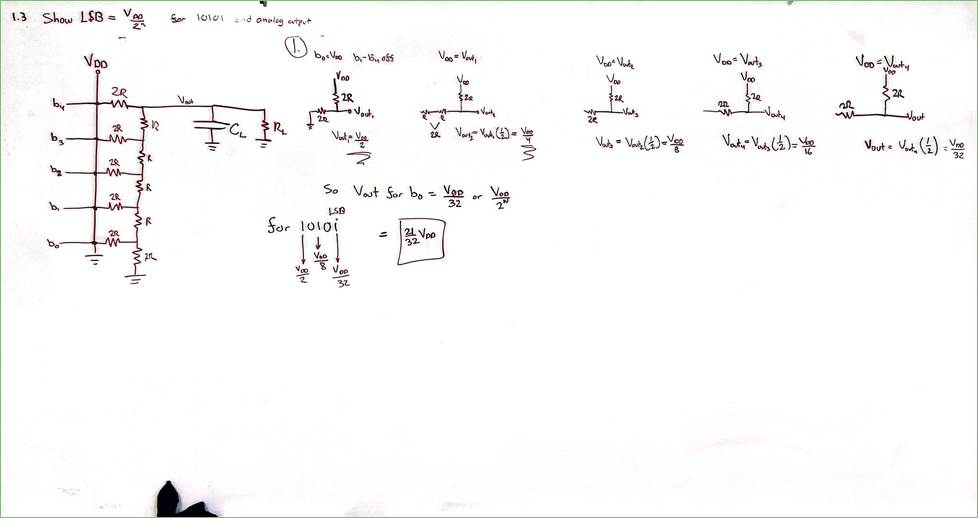 1.3 Show LSB = VDD/2^n for 10101 and analog output
VDD
b4 2R Vout
R CL RL
b3 2R
R
b2 2R
R
b1 2R
R
b0 2R
2R
1. b0=VDD b1-b4 off
VDD
2R
2R Vout1
Vout1 = VDD/2
VDD = Vout1
VDD
2R
R R Vout2
2R
Vout2 = Vout1(1/2) = VDD/4
VDD = Vout2
VDD
2R
2R Vout3
Vout3 = Vout2(1/2) = VDD/8
VDD = Vout3
VDD
2R
2R Vout4
Vout4 = Vout3(1/2) = VDD/16
VDD = Vout4
VDD
2R
2R Vout
Vout = Vout4(1/2) = VDD/32
So Vout for b0 = VDD/32 or VDD/2^N
LSB
for 10101 = 21/32 VDD
VDD/2 VDD/8 VDD/32